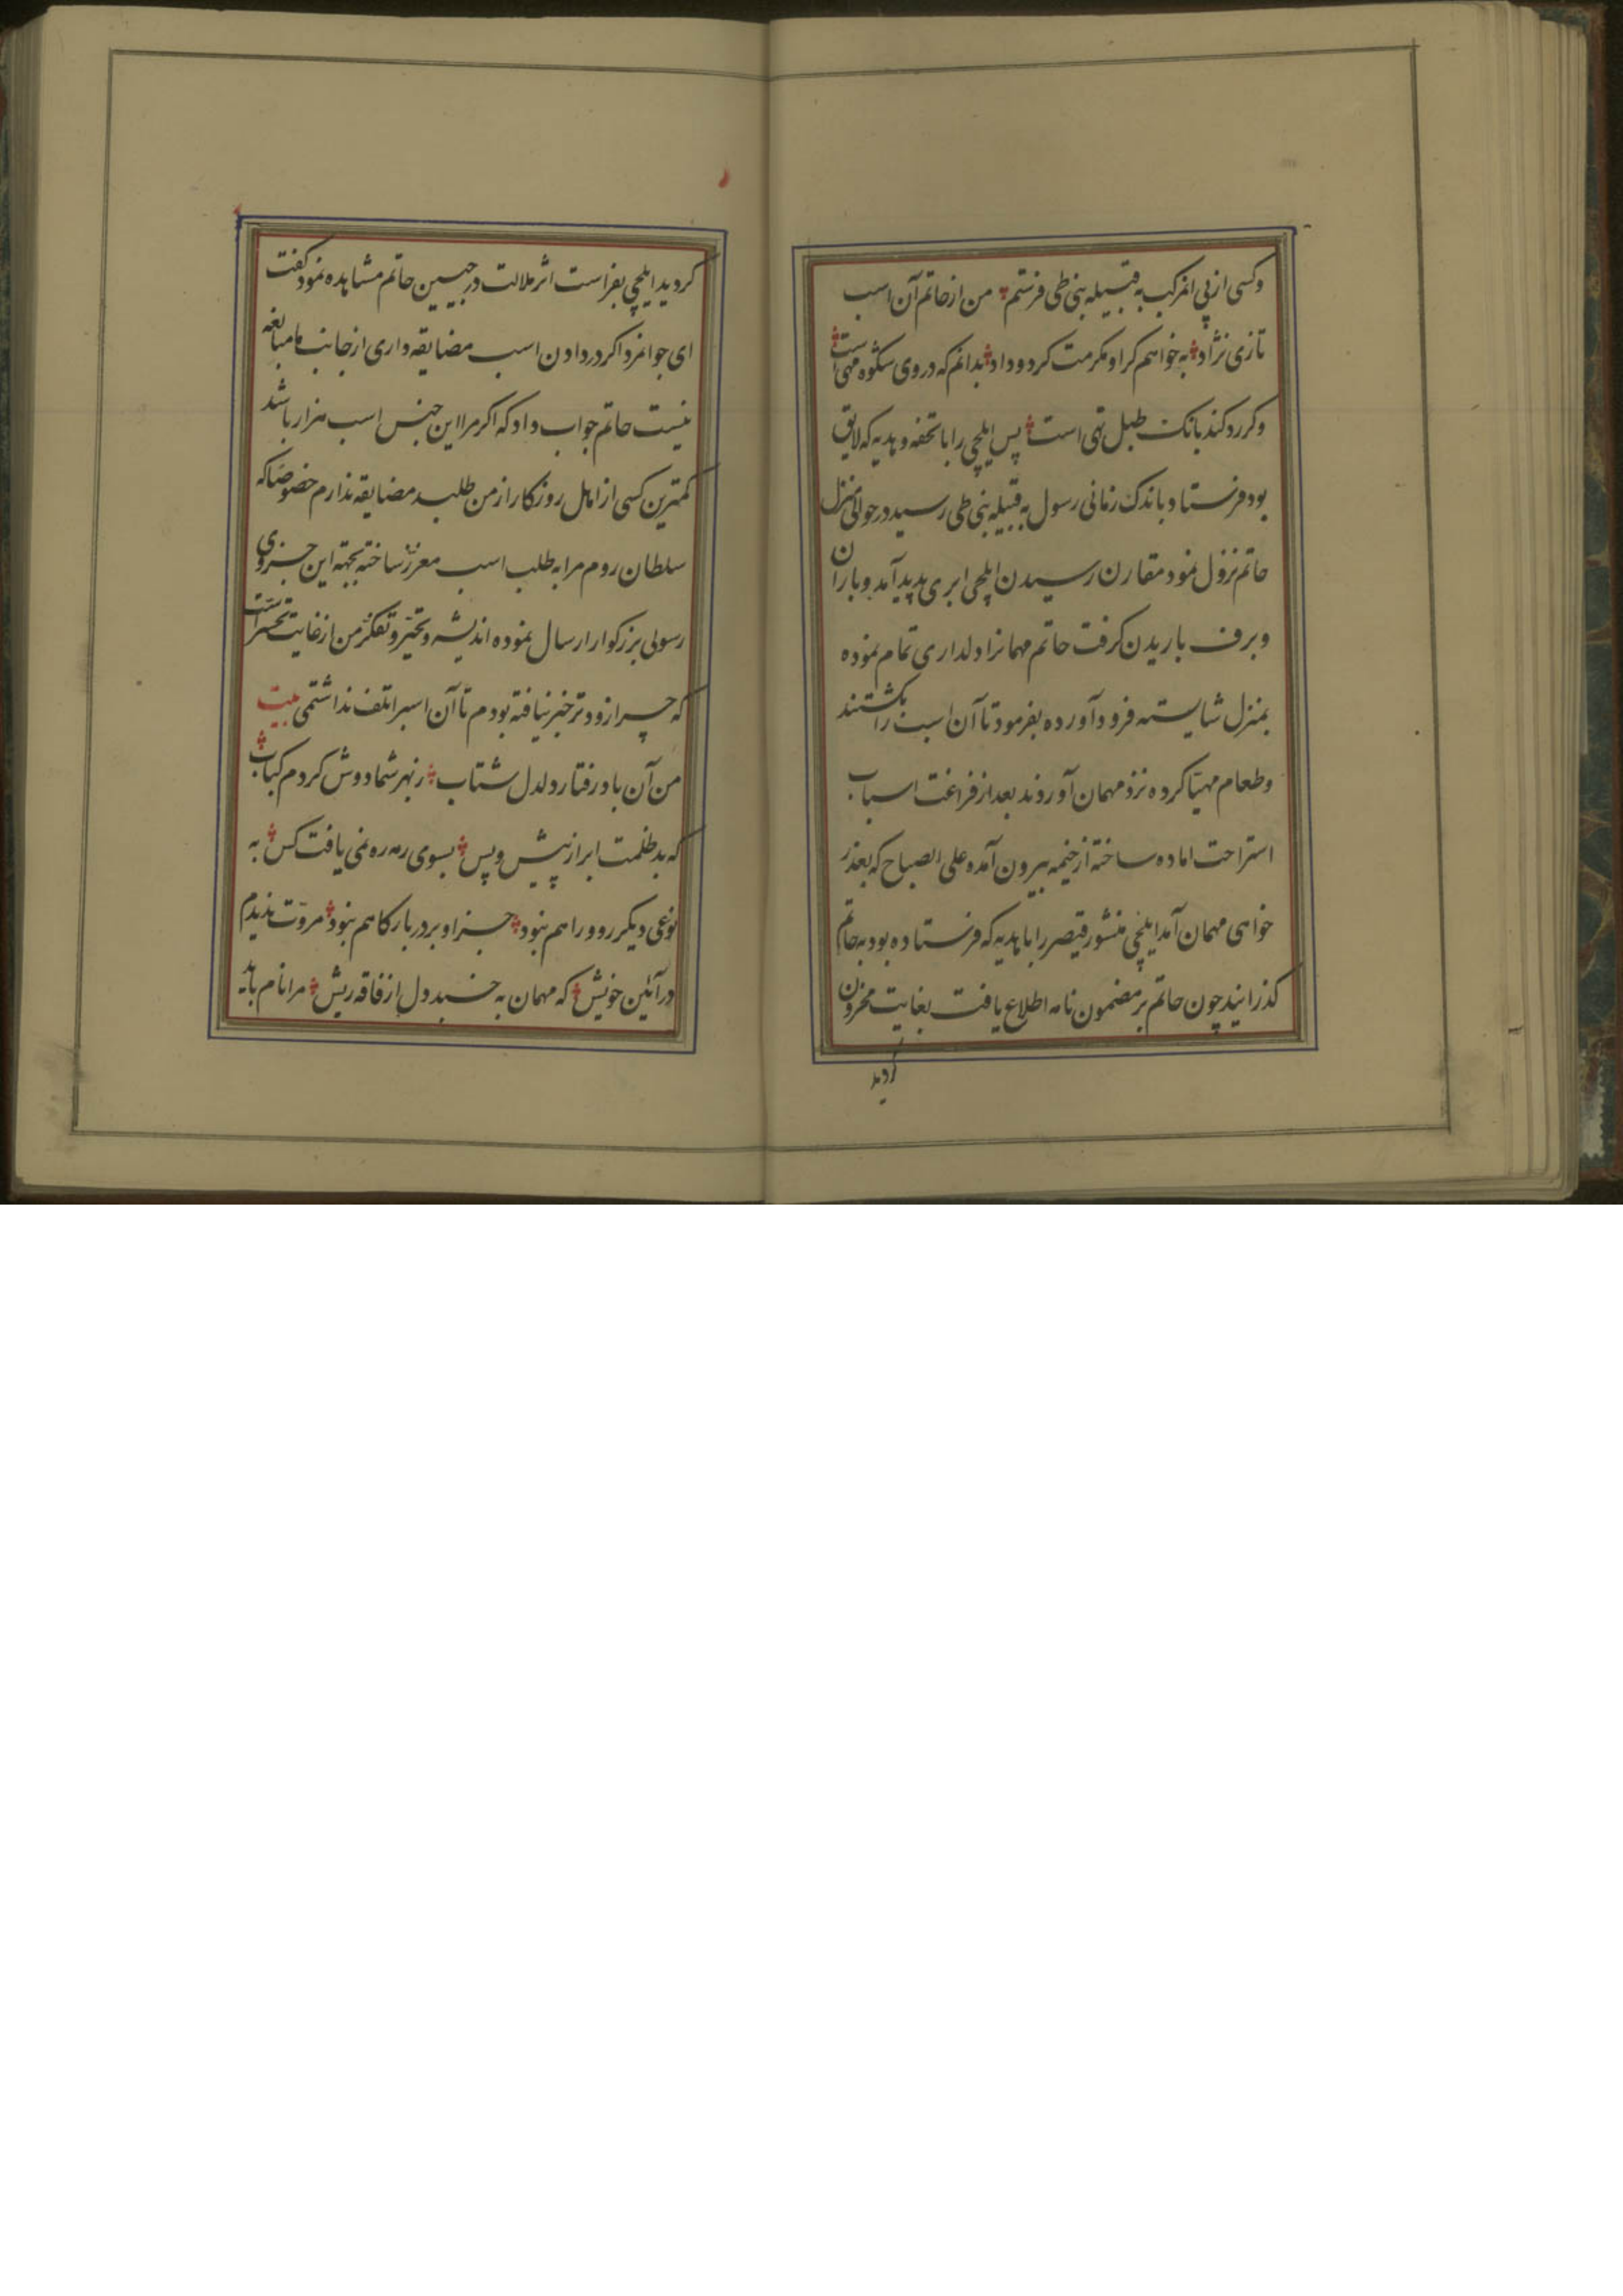 وکسی از پی انمرکب به قبیله بنی طی فرستم من از حاتم آن اسب
تازی نژاد به خواهم کر او مکرمت کرد و داد بدانم که در وی شکوه مهی است
وکر رد کند بانک طبل تهی است پس ایلچی را با تحفه و هدیه که لایق
بود فرستاد باندک زمانی رسول به قبیله بنی طی رسید در حوالی منزل
حاتم نزول نمود مقارن رسیدن ایلچی ابری پدید آمد و باران
وبرف باریدن کرفت حاتم مهمانرا دلداری تمام نموده
بمنزل شایسته فرود آورده بفرمود تا آن اسب را بکشتند
وطعام مهیّا کرده نزد مهمان آوردند بعد از فراغت اسباب
استراحت اماده ساخته از خیمه بیرون آمده علی الصباح که بعذر
خواهی مهمان آمد ایلچی منشور قیصر را با هدیه که فرستاده بود به حاتم
کذرانید چون حاتم بر مضمون نامه اطلاع یافت بغایت محزون
کردید
کردید ایلچی بفراست اثر ملالت در جبین حاتم مشاهده نمود کفت
ای جوانمرد اکر در دادن اسب مضایقه داری از جانب ما مبالغه
نیست حاتم جواب داد که اکر مرا این جنس اسب هزار باشد
کمترین کسی از اهل روزکار از من طلبد مضایقه ندارم خصوصًا که
سلطان روم مرا به طلب اسب معزز ساخته بجهته این جزوی
رسولی بزرکوار ارسال نموده اندیشه و تحیّر و تفکّر من از غایت تحسّر است
که چرا زودتر خبر نیافته بودم تا آن اسبرا تلف نداشتمی بیت
من آن باد رفتار دلدل شتاب ز بهر شما دوش کردم کباب
که بد ظلمت ابر از پیش و پس بسوی رمه ره نمی یافت کس به
نوعی دیکر روو راهم نبود جز او بر در بارکاهم نبود مروّت ندیدم
در آئین خویش که مهمان به خسبد دل از فاقه ریش مرا نام باید